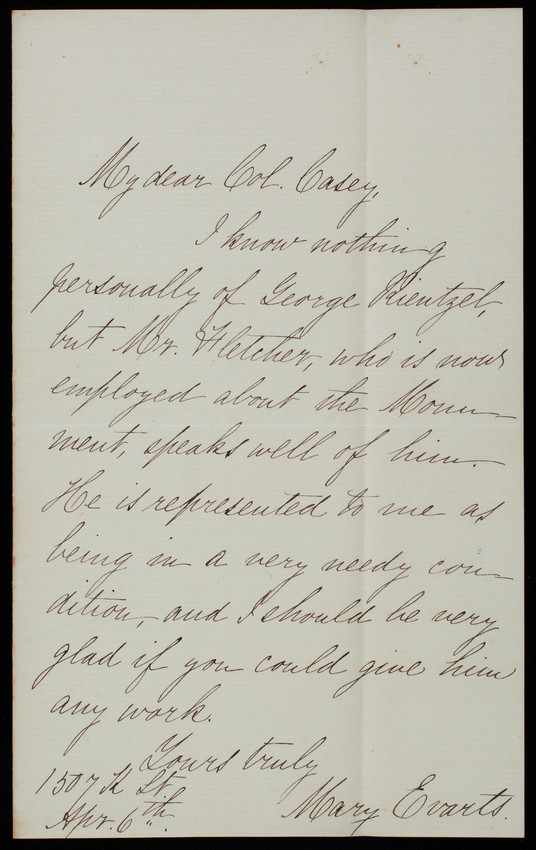 My dear Col. Casey,
I know nothing
personally of George Rientzel,
but Mr. Fletcher, who is now
employed about the Monu-
ment, speaks well of him.
He is represented to me as
being in a very needy con-
dition, and I should be very
glad if you could give him
any work.
Yours truly
1507 K St.
Mary Evarts.
Apr. 6th.